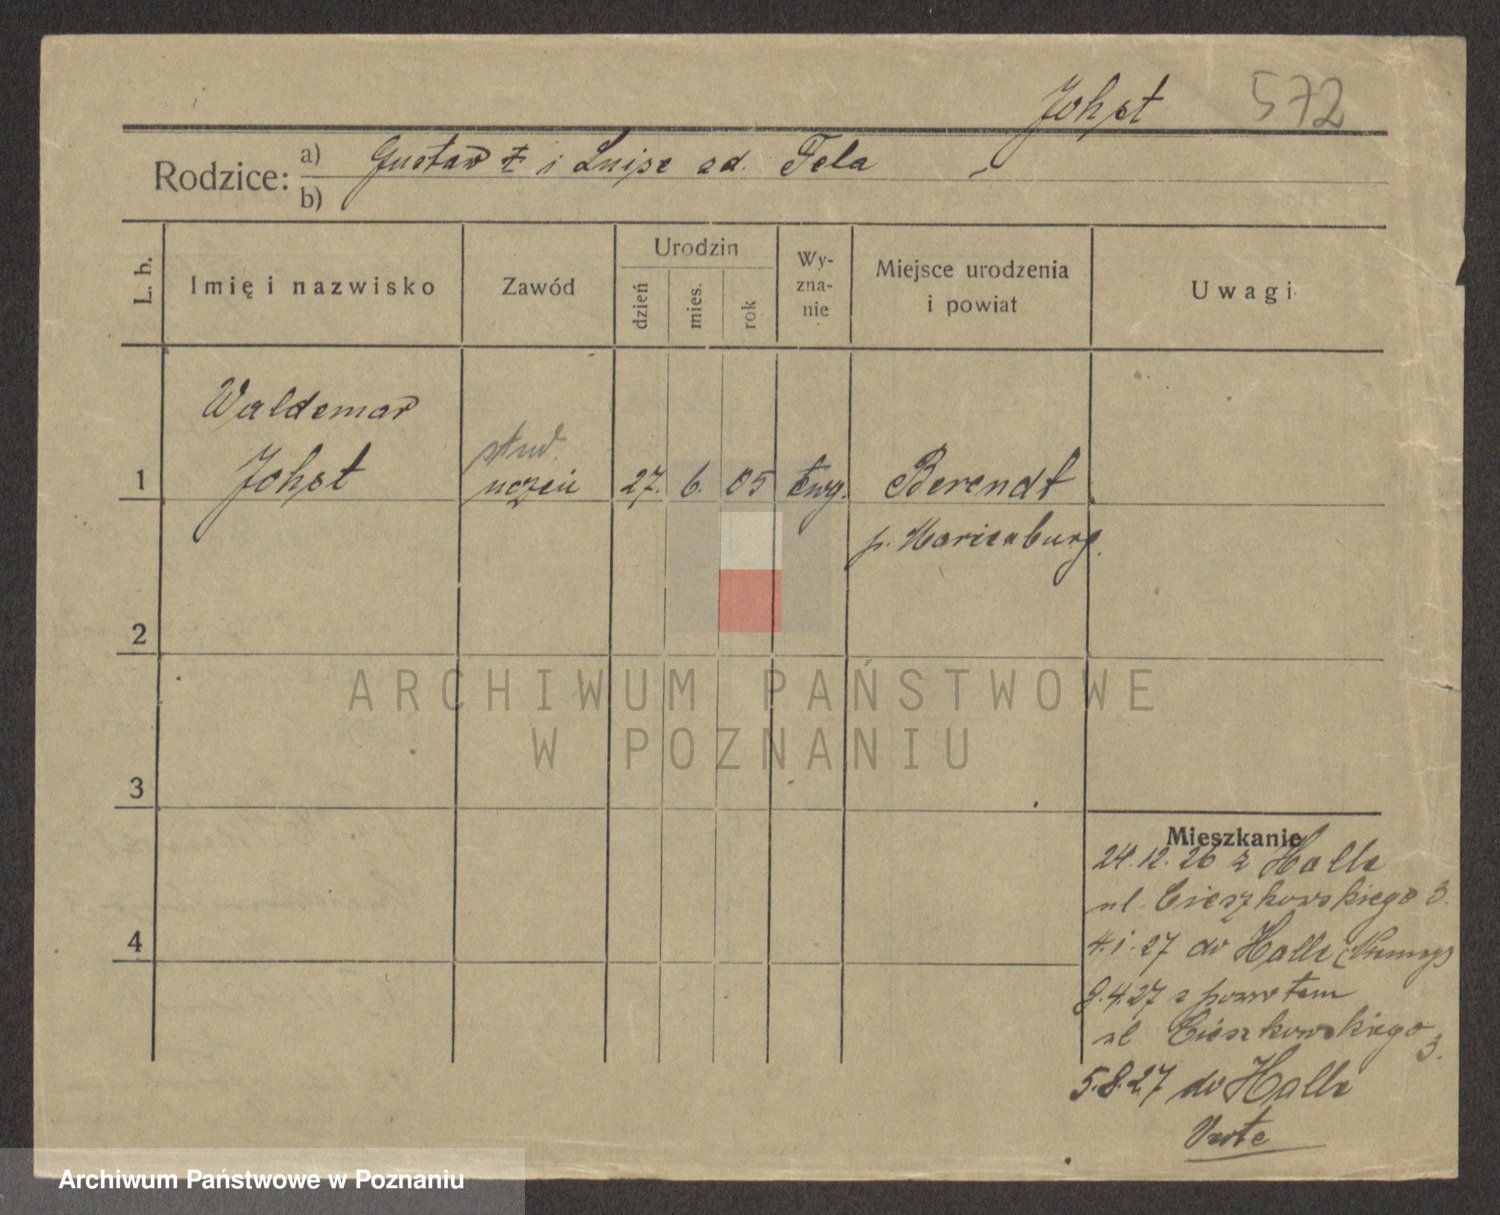 Johst 572
Rodzice: a) Gustaw i Luise sd. Tela
b)
L. b. Imię i nazwisko Zawód Urodzin dzień mies. rok Wy-zna-nie Miejsce urodzenia i powiat Uwagi
Waldemar
stud.
1 Johst uczeń 27. 6. 05 Ewg. Berendt
p. Marienburg.
2
ARCHIWUM PAŃSTWOWE
W POZNANIU
3
Mieszkanie
24.12.26 z Halle
ul. Cieszkowskiego 3.
4
4.1.27 do Halle (Niemcy)
8.4.27 z powrotem
ul Cieszkowskiego 3.
5.8.27 do Halle
Verte
Archiwum Państwowe w Poznaniu